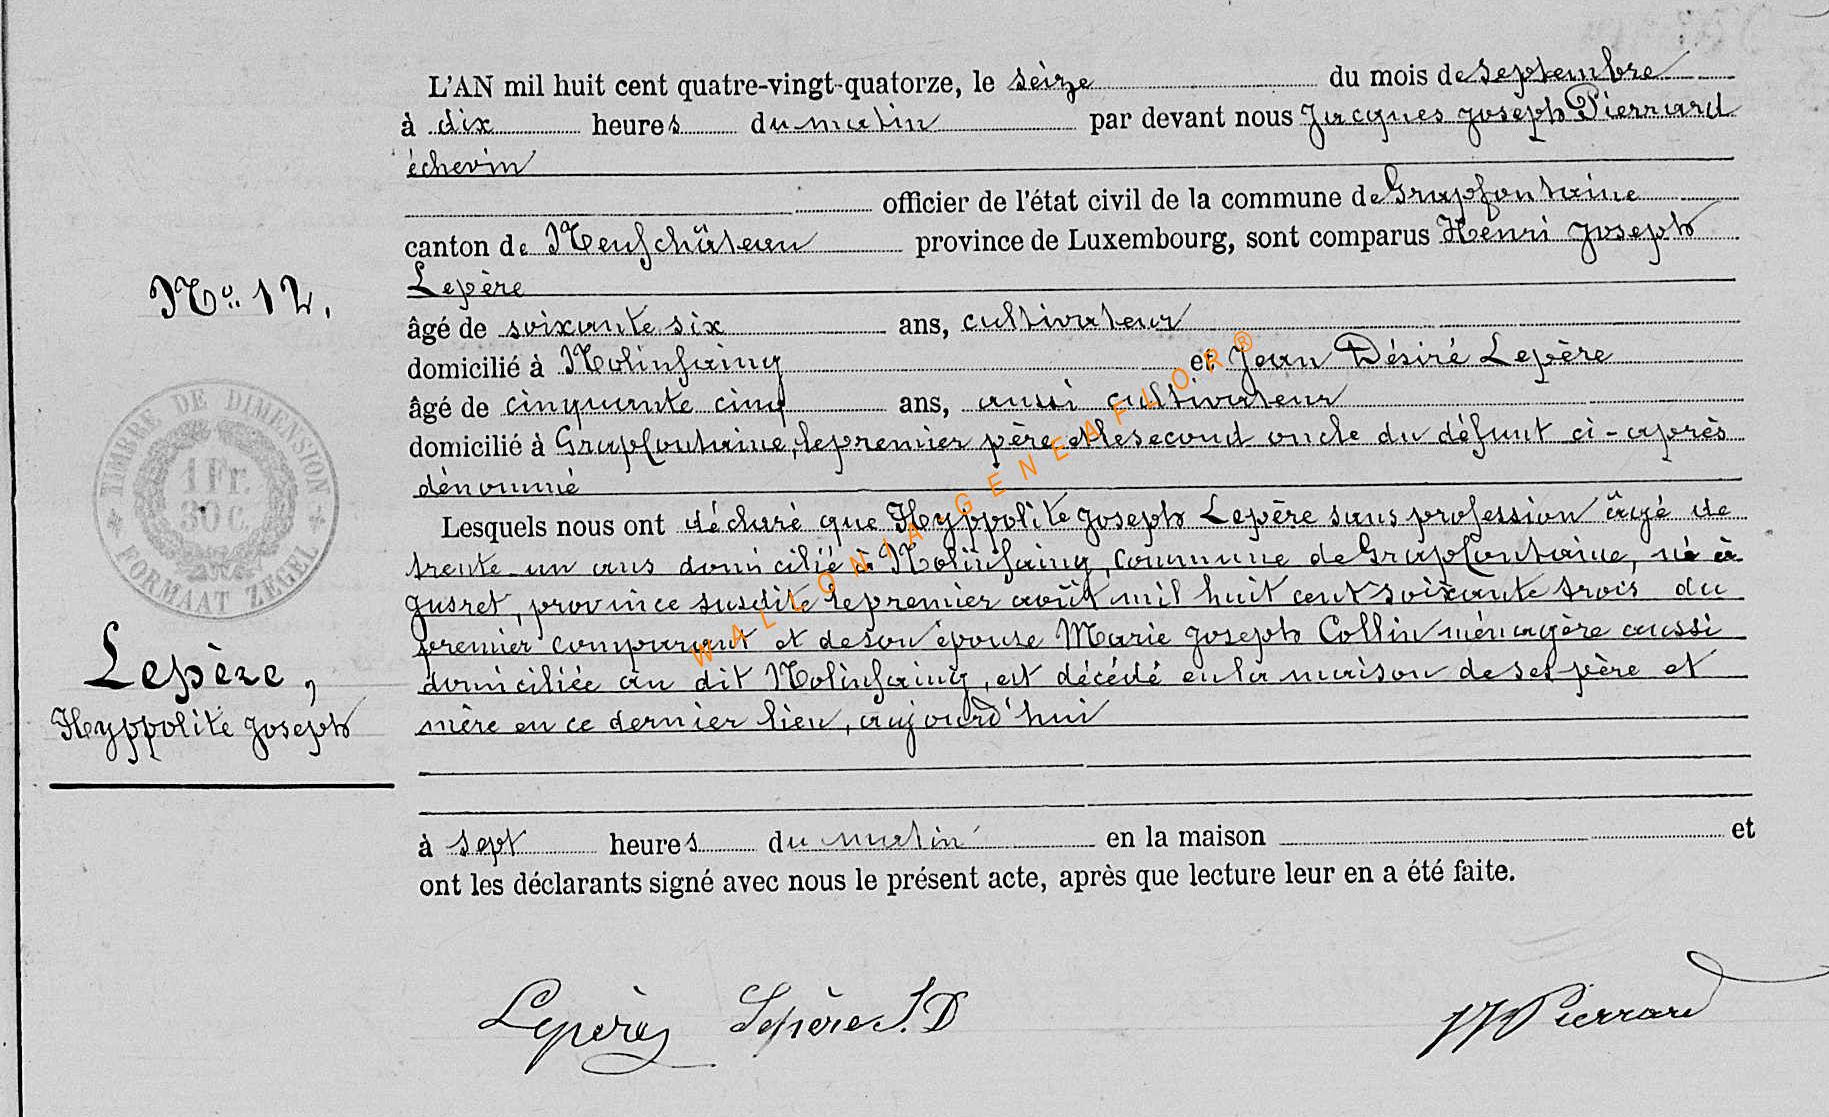 L'AN mil huit cent quatre-vingt-quatorze, le seize du mois de Septembre
à dix heures du matin par devant nous Jacques Joseph Pierrard
échevin
officier de l'état civil de la commune de Grapfontaine
canton de Neufchâteau province de Luxembourg, sont comparus Henri Joseph
Lepère
âgé de soixante six ans, cultivateur
domicilié à Molinfaing et Jean Désiré Lepère
âgé de cinquante cinq ans, aussi cultivateur
domicilié à Grapfontaine, le premier père et le second oncle du défunt ci-après
dénommé
Lesquels nous ont déclaré que Hyppolite Joseph Lepère sans profession âgé de
trente un ans domicilié à Molinfaing, commune de Grapfontaine, né à
Jusret, province susdite le premier août mil huit cent soixante trois du
premier comparant et de son épouse Marie Joseph Collin ménagère aussi
domiciliée au dit Molinfaing, est décédé en la maison de ses père et
mère en ce dernier lieu, aujourd'hui
à sept heures du matin en la maison et
ont les déclarants signé avec nous le présent acte, après que lecture leur en a été faite.
Lepère Lepère J.D JJPierrard
No 12.
TIMBRE DE DIMENSION
1 Fr.
30 c.
FORMAAT ZEGEL
Lepère,
Hyppolite Joseph
WALLONIA-GENEAFLOR®